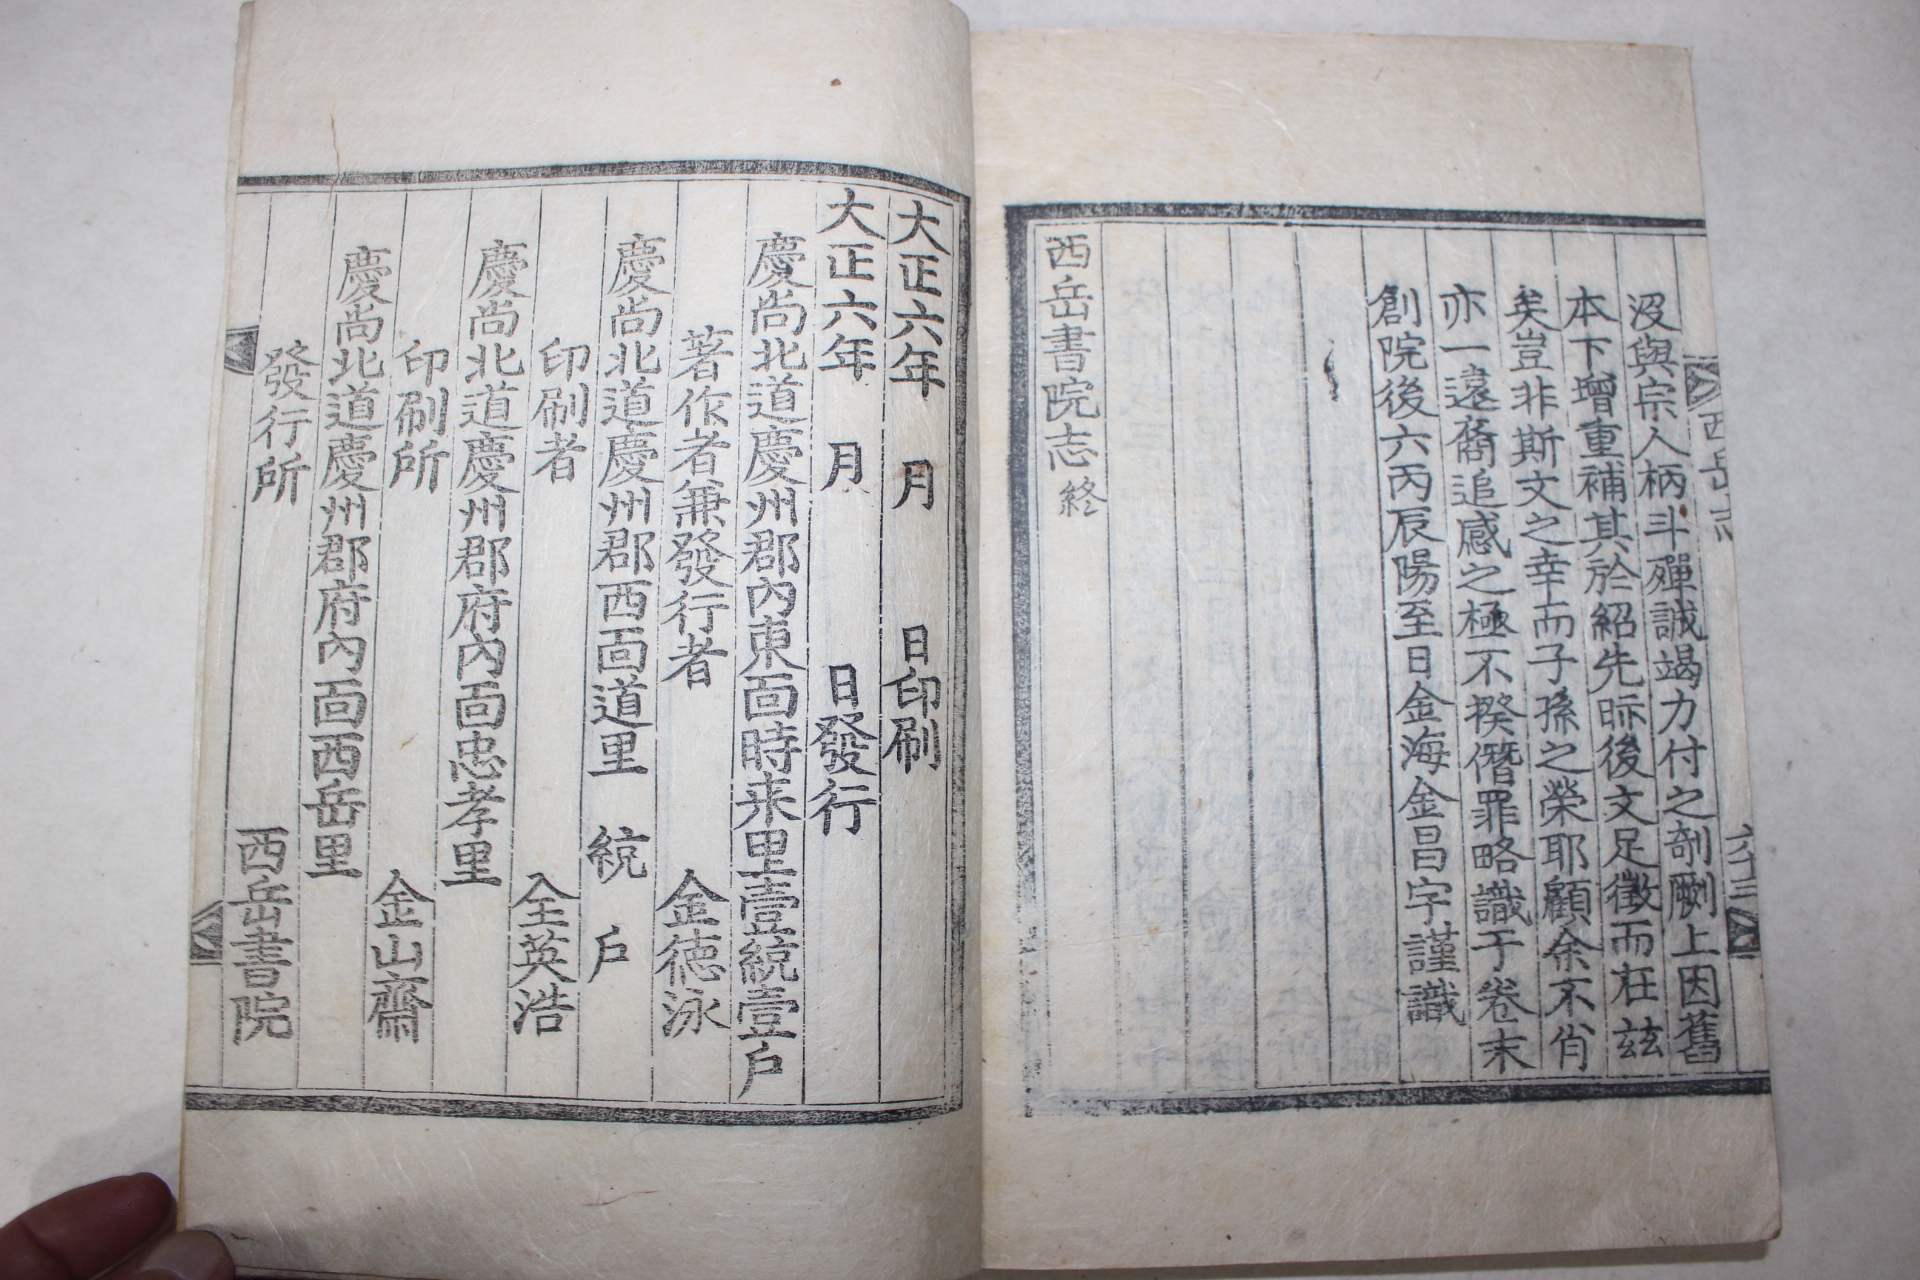 西岳志
六十三
沒與宗人柄斗殫誠竭力付之剞劂上因舊
本下增重補其於紹先眎後文足徵而在玆
矣豈非斯文之幸而子孫之榮耶顧余不肖
亦一遠裔追感之極不揆僭罪略識于卷末
創院後六丙辰陽至日金海金昌宇謹識
西岳書院志終
大正六年 月 日印刷
大正六年 月 日發行
慶尙北道慶州郡內東面時来里壹統壹戶
著作者兼發行者 金德泳
慶尙北道慶州郡西面道里 統 戶
印刷者 全英浩
慶尙北道慶州郡府內面忠孝里
印刷所 金山齋
慶尙北道慶州郡府內面西岳里
發行所 西岳書院